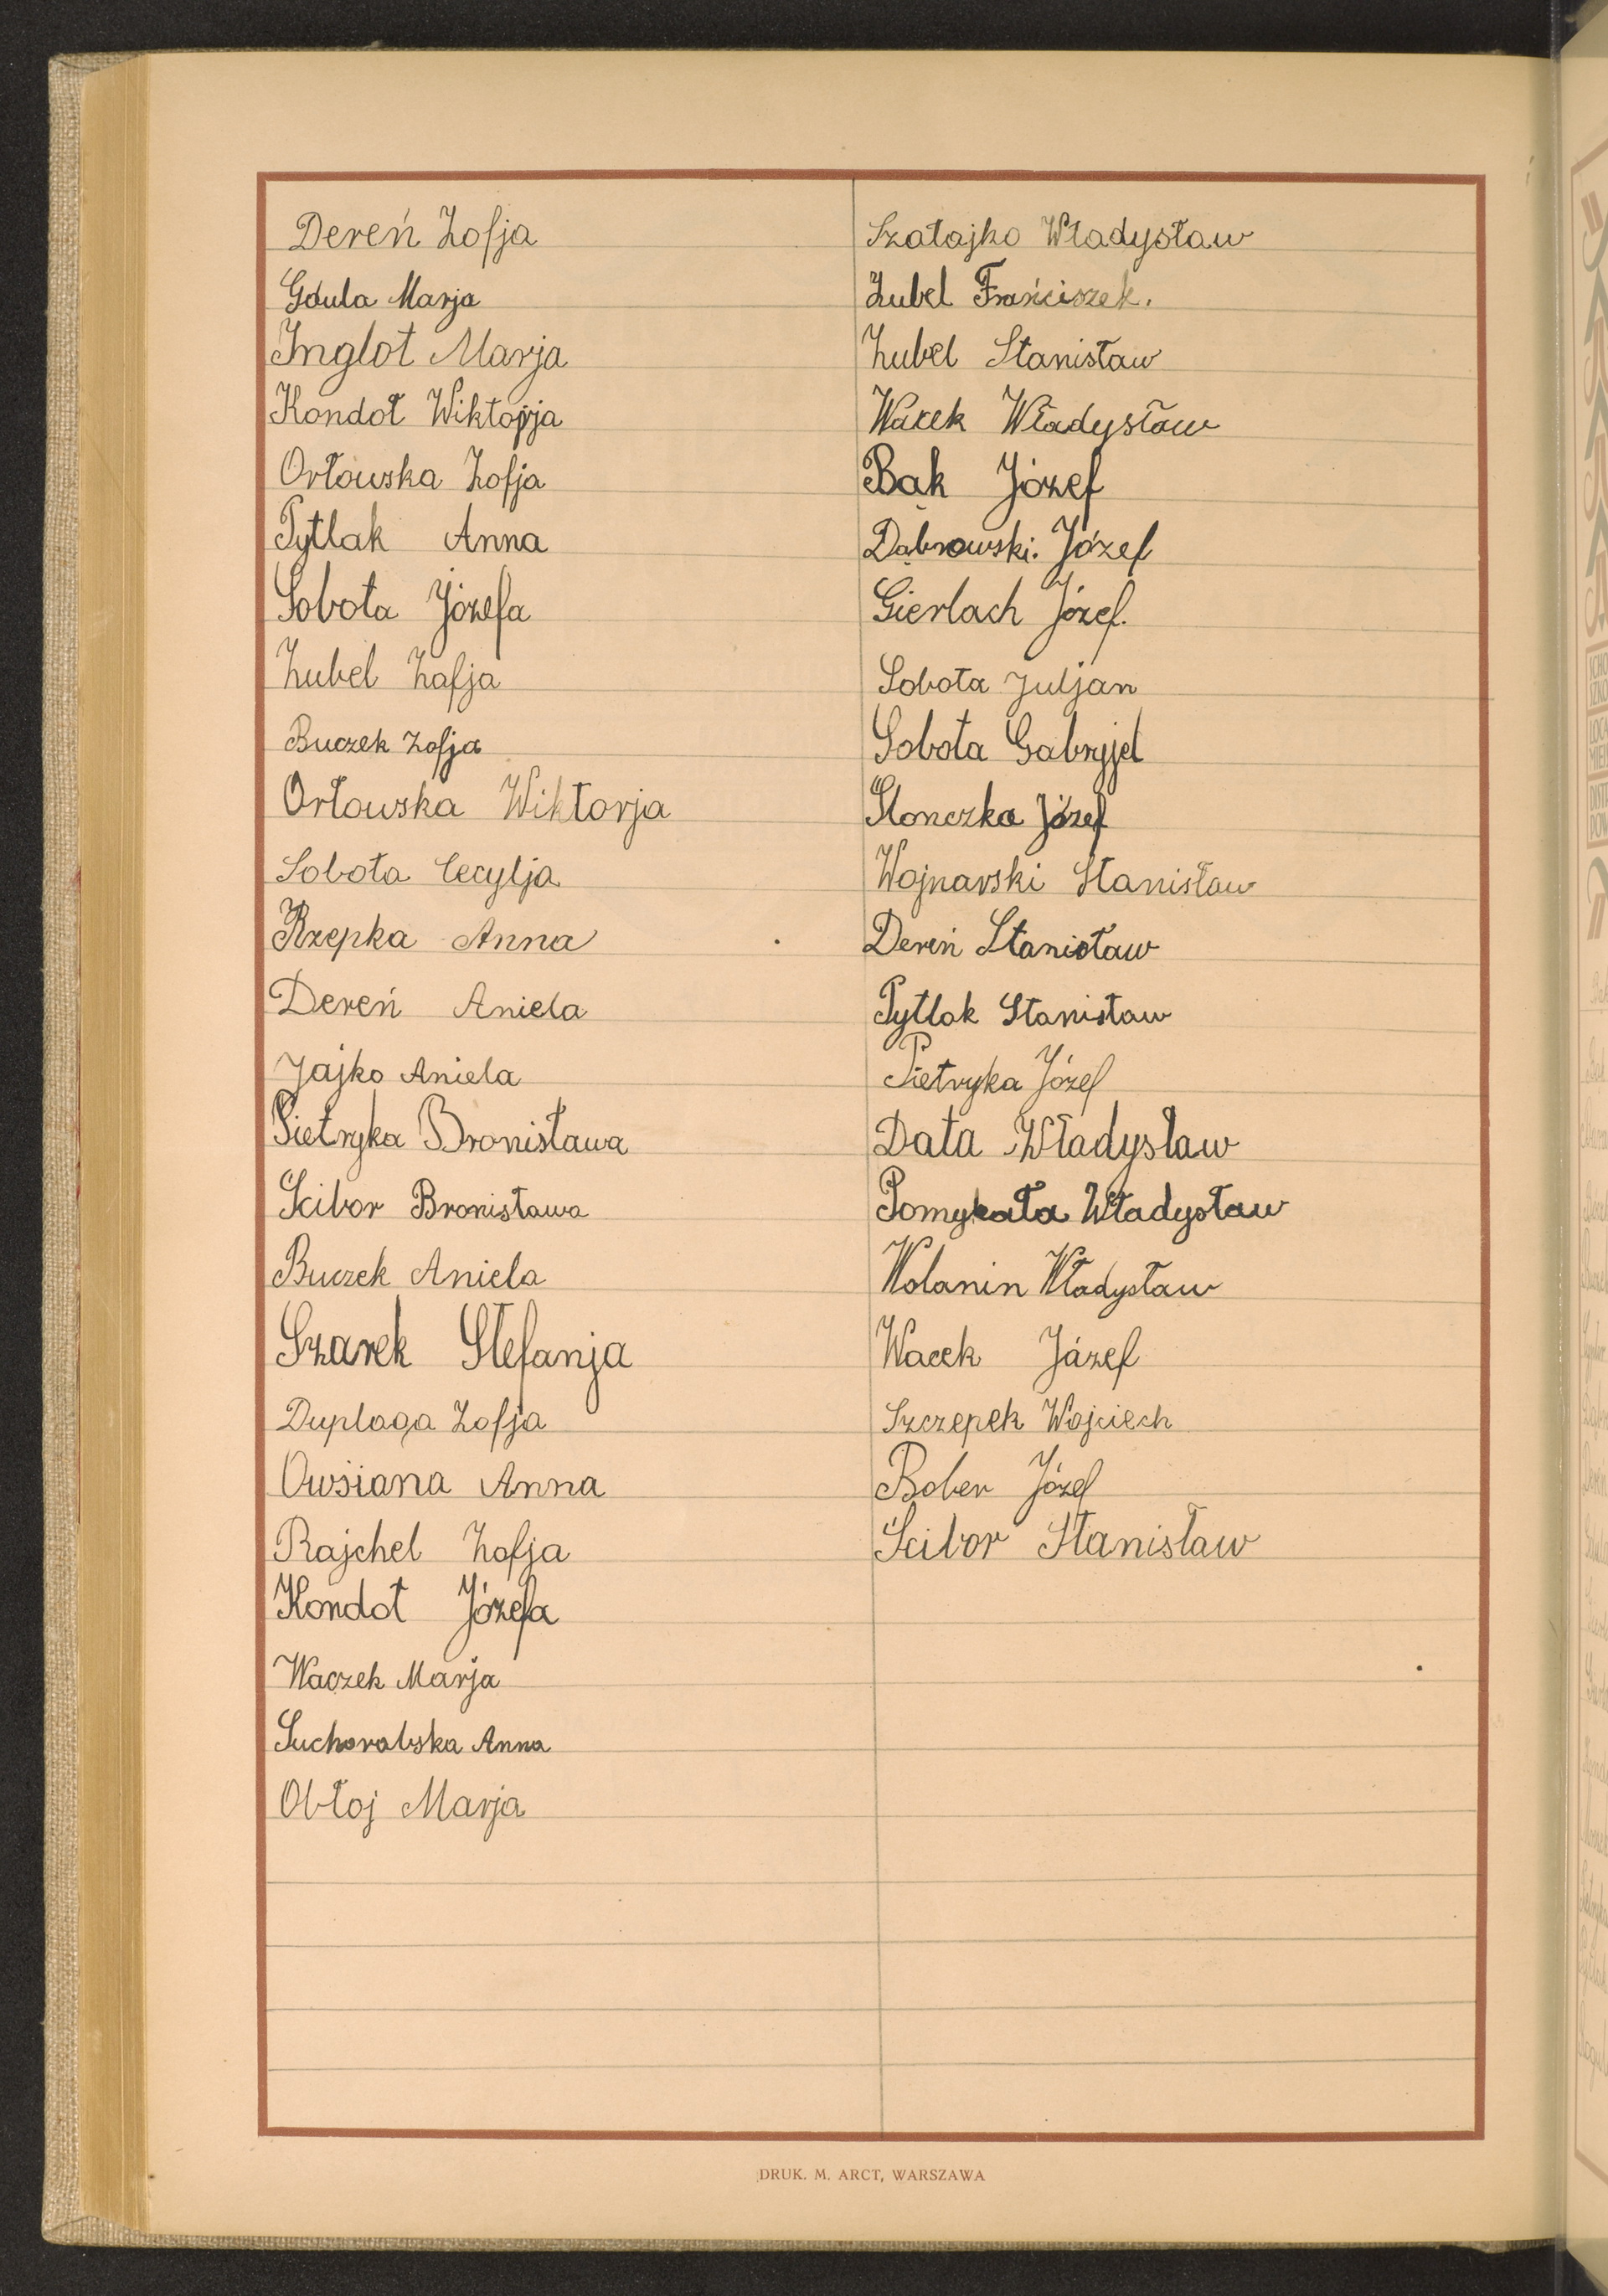 Dereń Zofja
Gdula Marja
Inglot Marja
Kondoł Wiktorja
Orłowska Zofja
Pytlak Anna
Sobota Józefa
Zubel Zofja
Buczek Zofja
Orłowska Wiktorja
Sobota Cecylja
Rzepka Anna
Dereń Aniela
Jajko Aniela
Pietryka Bronisława
Ścibor Bronisława
Buczek Aniela
Szarek Stefanja
Duplaga Zofja
Owsiana Anna
Rajchel Zofja
Kondoł Józefa
Waczek Marja
Suchorabska Anna
Obłoj Marja
Szałajko Władysław
Zubel Franciszek.
Zubel Stanisław
Wacek Władysław
Bąk Józef
Dąbrowski. Józef
Gierlach Józef.
Sobota Juljan
Sobota Gabryjel
Słonczka Józef
Wojnarski Stanisław
Dereń Stanisław
Pytlak Stanisław
Pietryka Józef
Data Władysław
Pomykała Władysław
Wolanin Władysław
Wacek Józef
Szczepek Wojciech
Bober Józef
Ścibor Stanisław
DRUK. M. ARCT, WARSZAWA